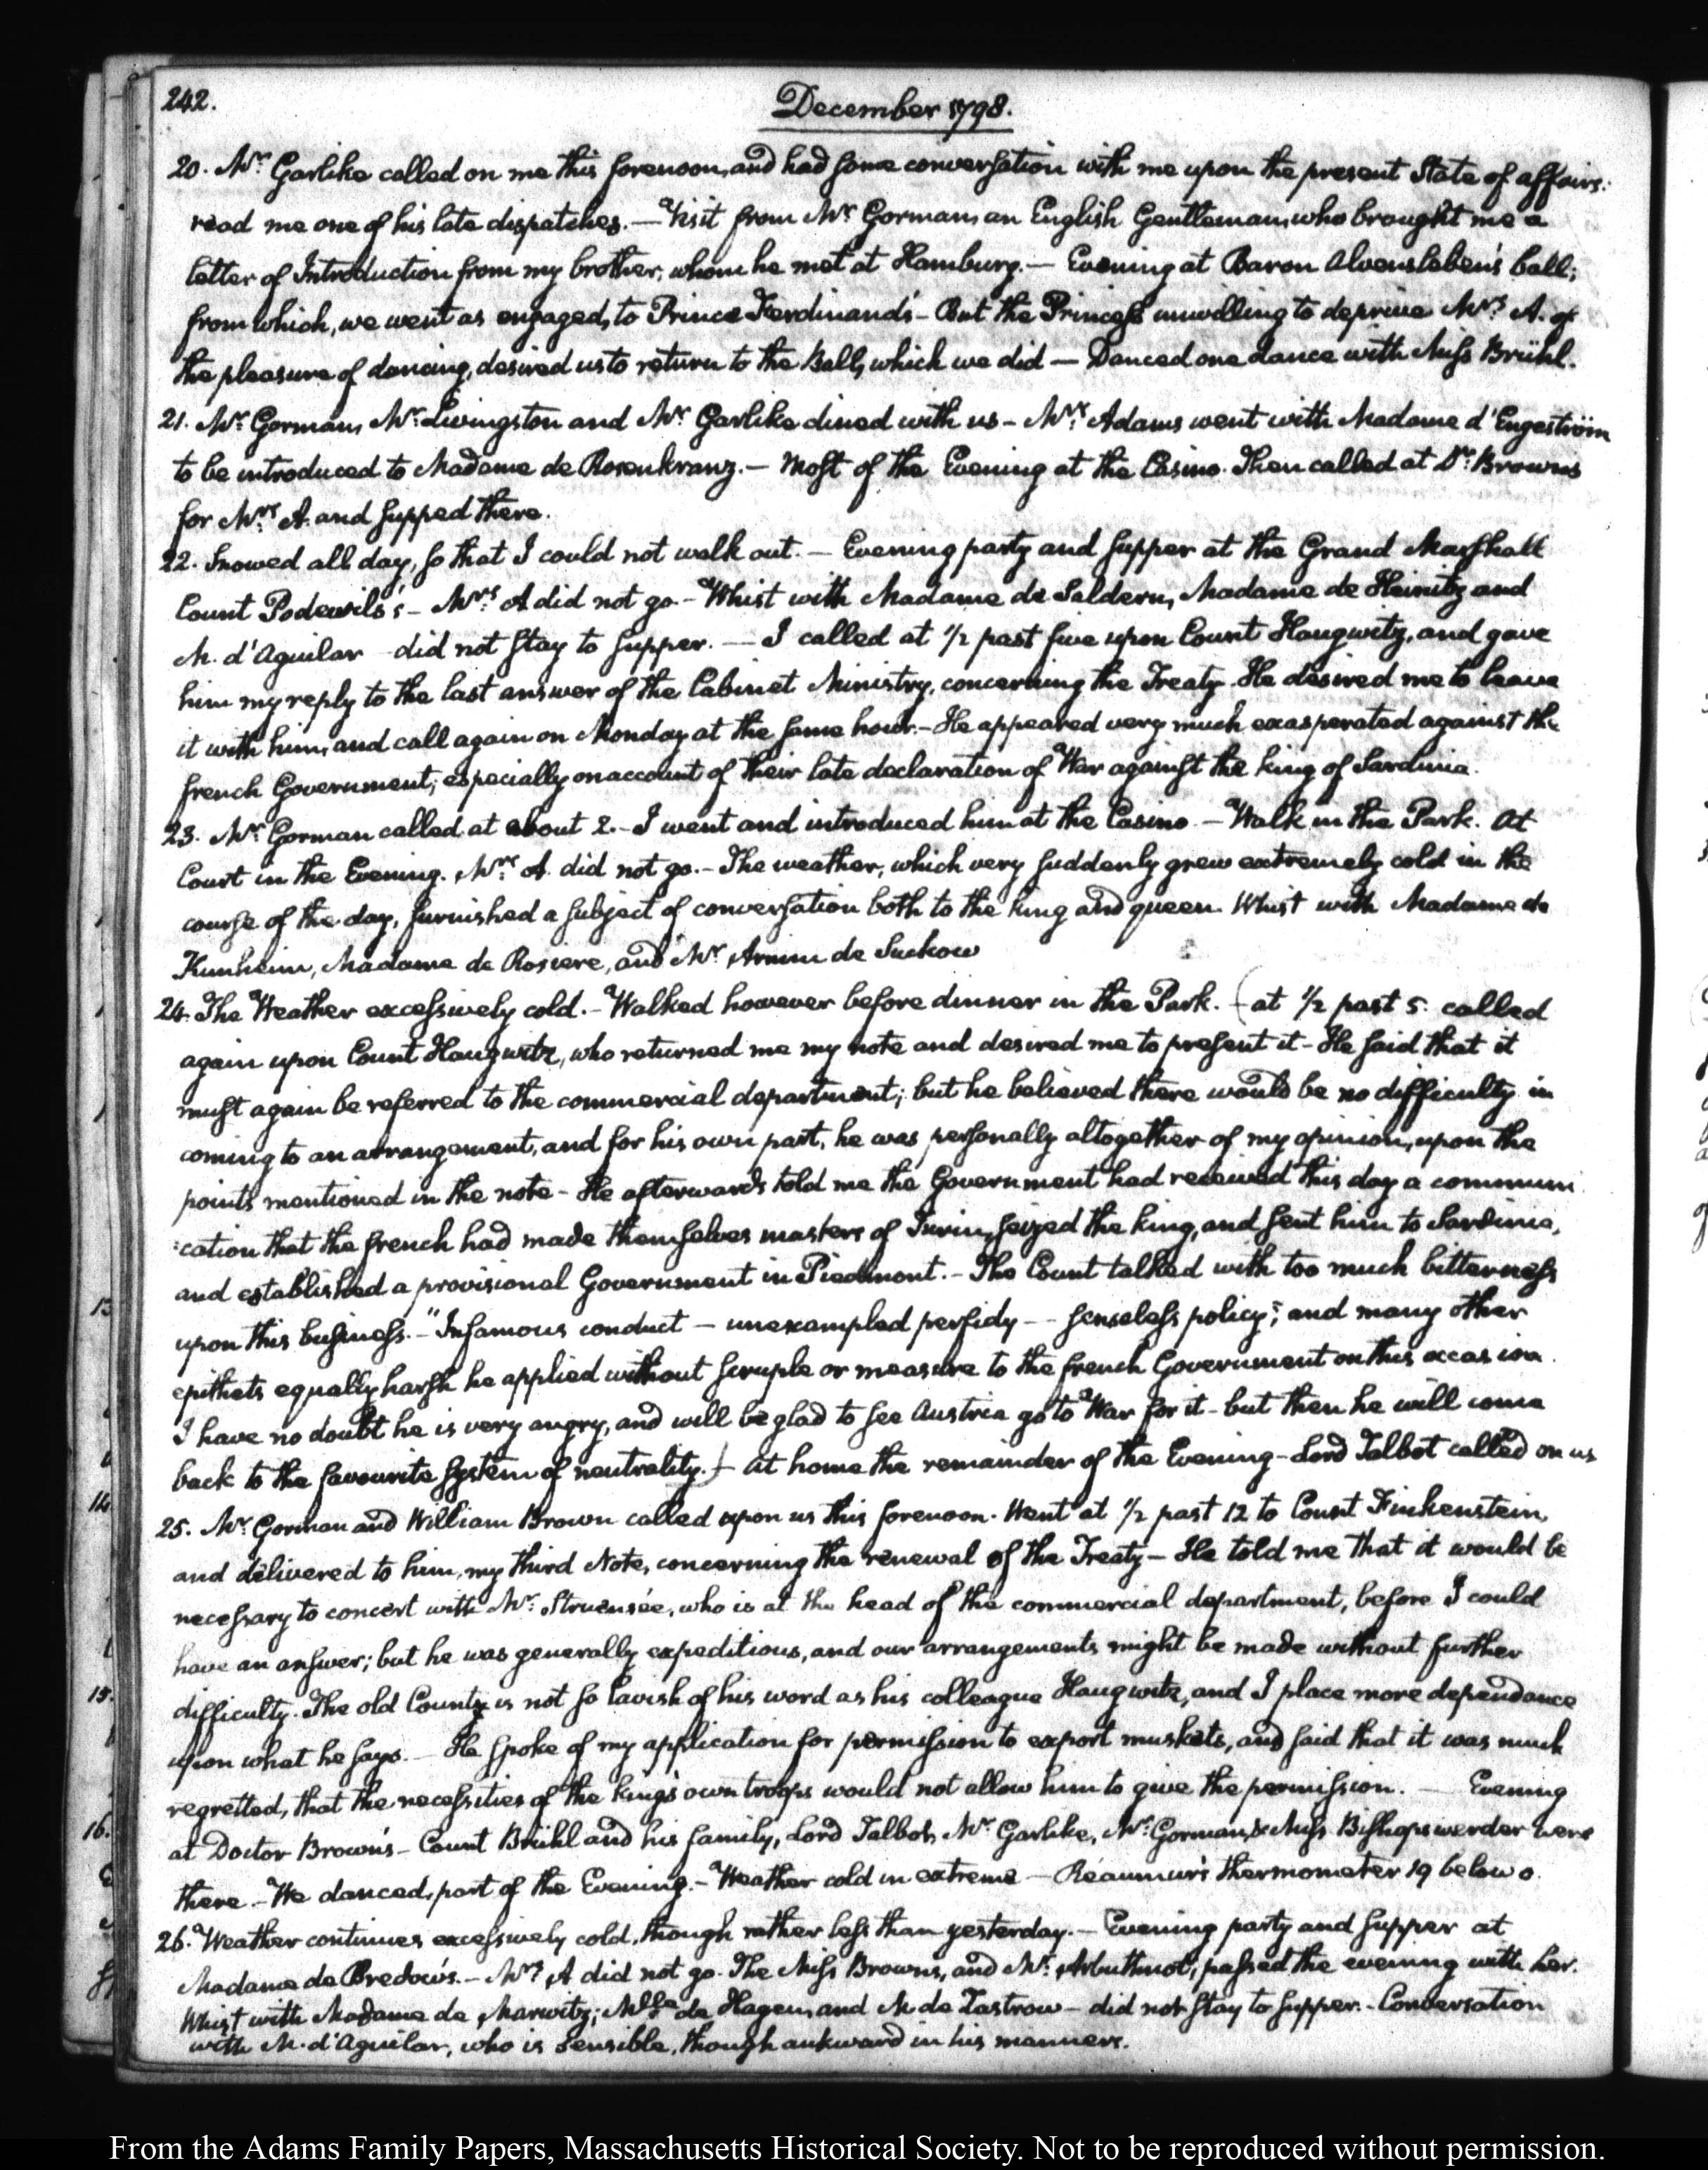 242.
December 1798.
20. Mr. Garlike called on me this forenoon, and had some conversation with me upon the present State of affairs:
read me one of his late dispatches. — Visit from Mr. Gorman, an English Gentleman, who brought me a
letter of Introduction from my brother, whom he met at Hamburg. — Evening at Baron Alvensleben's ball;
from which, we went as engaged, to Prince Ferdinand's — But the Princess unwilling to deprive Mrs. A. of
the pleasure of dancing, desired us to return to the Ball, which we did — Danced one dance with Miss Brühl.
21. Mr. Gorman, Mr. Livingston and Mr. Garlike dined with us — Mrs. Adams went with Madame d'Engeström
to be introduced to Madame de Rosenkranz. — Most of the Evening at the Casino. Then called at Dr. Browns
for Mrs. A. and supped there.
22. Snowed all day, so that I could not walk out. — Evening party and supper at the Grand Marshall
Count Podewils's — Mrs. A did not go. — Whist with Madame de Saldern, Madame de Heinitz and
M. d'Aguilar did not stay to supper. — I called at 1/2 past five upon Count Haugwitz, and gave
him my reply to the last answer of the Cabinet Ministry, concerning the Treaty. He desired me to leave
it with him, and call again on Monday at the same hour. — He appeared very much exasperated against the
french Government; especially on account of their late declaration of War against the king of Sardinia.
23. Mr. Gorman called at about 2. — I went and introduced him at the Casino — Walk in the Park. At
Court in the Evening. Mrs. A. did not go. — The weather, which very suddenly grew extremely cold in the
course of the day, furnished a subject of conversation both to the king and queen. Whist with Madame de
Kunheim, Madame de Rosiere, and Mr. Arnim de Suckow
24. The Weather excessively cold. — Walked however before dinner in the Park. — (at 1/2 past 5. called
again upon Count Haugwitz, who returned me my note and desired me to present it — He said that it
must again be referred to the commercial department; but he believed there would be no difficulty in
coming to an arrangement, and for his own part, he was personally altogether of my opinion, upon the
points mentioned in the note — He afterwards told me the Government had received this day a communi
:cation that the french had made themselves masters of Turin, seized the king, and sent him to Sardinia,
and established a provisional Government in Piedmont. — The Count talked with too much bitterness
upon this business. — "Infamous conduct — unexampled perfidy — senseless policy"; and many other
epithets equally harsh he applied without scruple or measure to the french Government on this occasion.
I have no doubt he is very angry, and will be glad to see Austria go to War for it — but then he will come
back to the favourite system of neutrality.) — At home the remainder of the Evening — Lord Talbot called on us
25. Mr. Gorman and William Brown called upon us this forenoon. Went at 1/2 past 12 to Count Finkenstein,
and delivered to him, my third Note, concerning the renewal of the Treaty — He told me that it would be
necessary to concert with Mr. Struensée, who is at the head of the commercial department, before I could
have an answer; but he was generally expeditious, and our arrangements might be made without further
difficulty. The old Count is not so lavish of his word as his colleague Haugwitz, and I place more dependance
upon what he says. — He spoke of my application for permission to export muskets, and said that it was much
regretted, that the necessities of the king's own troops would not allow him to give the permission. — Evening
at Doctor Brown's — Count Brühl and his family, Lord Talbot, Mr. Garlike, Mr. Gorman, & Miss Bishopswerder were
there. — We danced, part of the Evening. — Weather cold in extreme — Réaumur's thermometer 19 below 0.
26. Weather continues excessively cold, though rather less than yesterday. — Evening party and supper at
Madame de Bredow's. — Mrs. A did not go. The Miss Browns, and Mr. Arbuthnot, passed the evening with her.
Whist with Madame de Marwitz; Mlle. de Hagen, and M. de Zastrow — did not stay to supper. — Conversation
with M. d'Aguilar, who is sensible, though aukward in his manners.
From the Adams Family Papers, Massachusetts Historical Society. Not to be reproduced without permission.